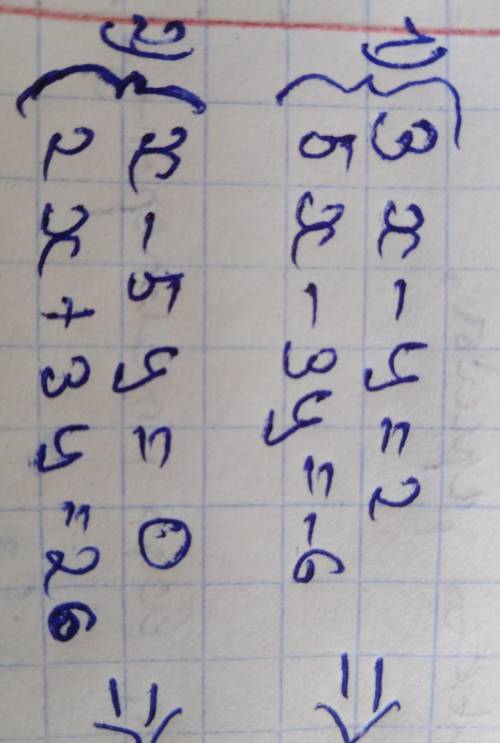 1) { 3x - y = 2
5x - 3y = -6 =>
2) { x - 5y = 0
2x + 3y = 26 =>